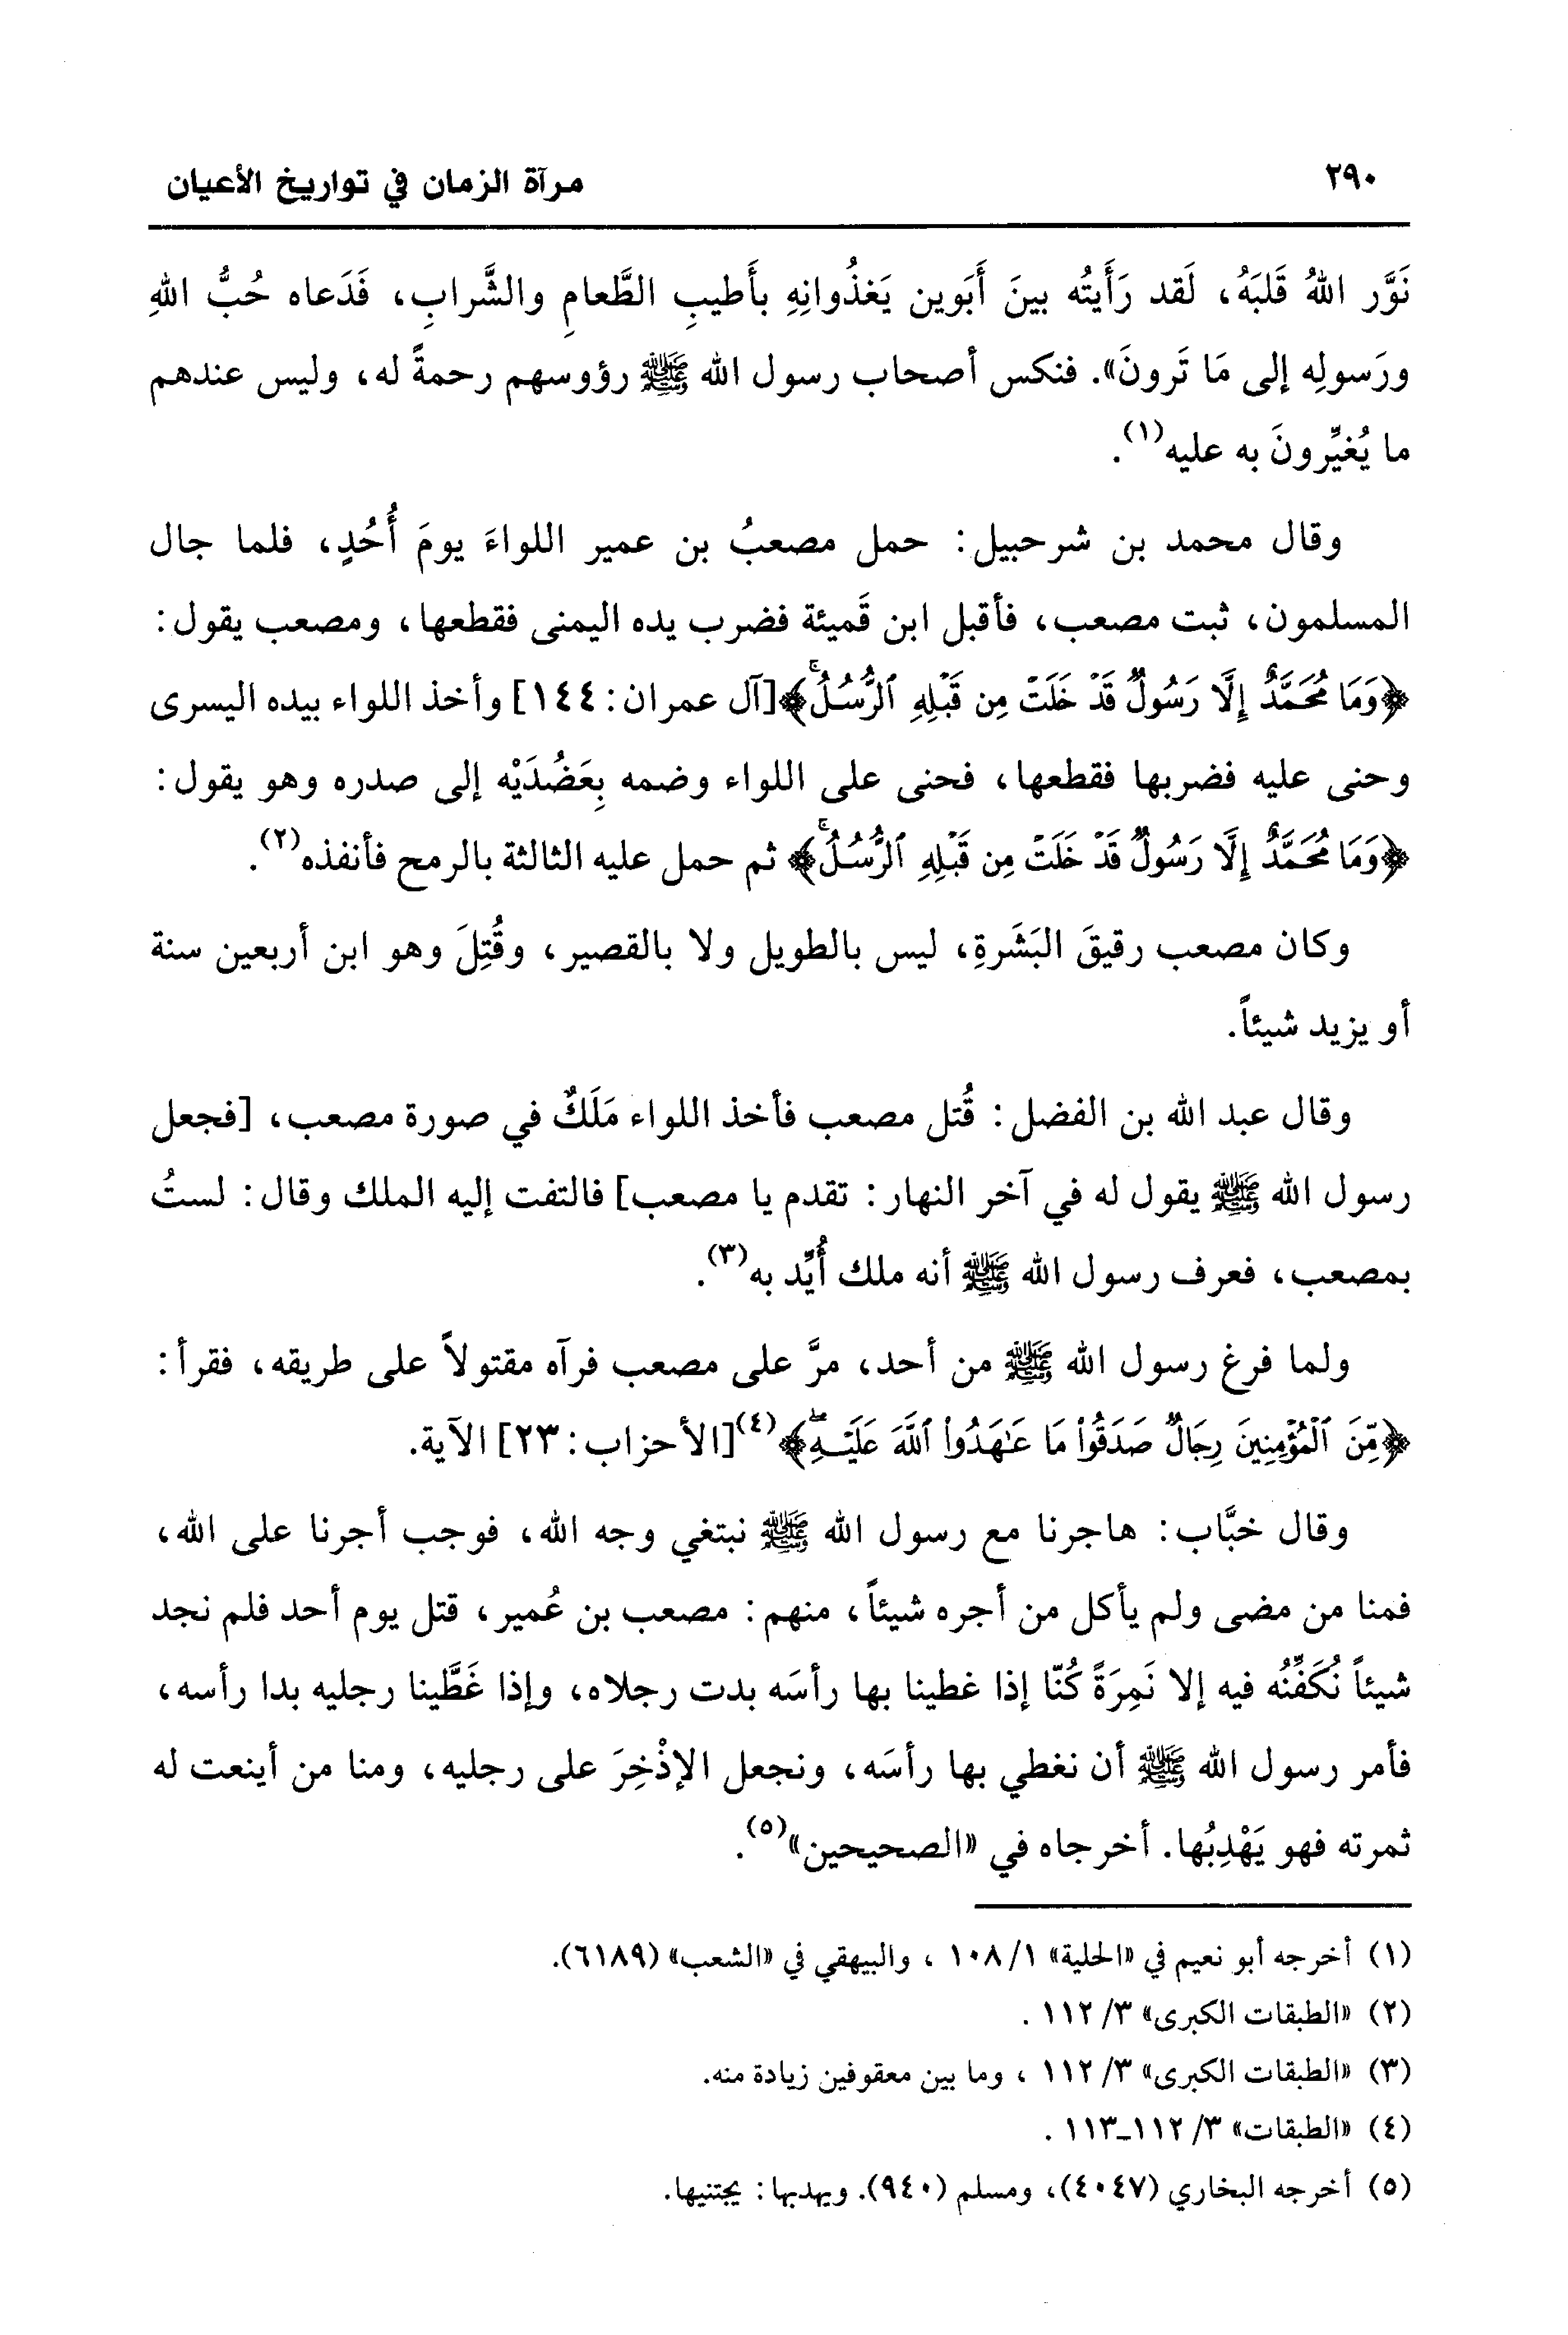 ٢٩٠ مرآة الزمان في تواريخ الأعيان
نَوَّر اللهُ قَلبَهُ، لَقد رَأَيتُه بينَ أَبَوين يَغذُوانِهِ بأَطيبِ الطَّعامِ والشَّرابِ، فَدَعاه حُبُّ اللهِ
ورَسولِه إلى مَا تَرونَ». فنكس أصحاب رسول الله ﷺ رؤوسهم رحمةً له، وليس عندهم
ما يُغيِّرونَ به عليه(١).
وقال محمد بن شرحبيل: حمل مصعبُ بن عمير اللواءَ يومَ أُحُدٍ، فلما جال
المسلمون، ثبت مصعب، فأقبل ابن قَميئة فضرب يده اليمنى فقطعها، ومصعب يقول:
﴿وَمَا مُحَمَّدٌ إِلَّا رَسُولٌ قَدْ خَلَتْ مِن قَبْلِهِ ٱلرُّسُلُۚ﴾[آل عمران: ١٤٤] وأخذ اللواء بيده اليسرى
وحنى عليه فضربها فقطعها، فحنى على اللواء وضمه بِعَضُدَيْه إلى صدره وهو يقول:
﴿وَمَا مُحَمَّدٌ إِلَّا رَسُولٌ قَدْ خَلَتْ مِن قَبْلِهِ ٱلرُّسُلُۚ﴾ ثم حمل عليه الثالثة بالرمح فأنفذه(٢).
وكان مصعب رقيقَ البَشَرةِ، ليس بالطويل ولا بالقصير، وقُتِلَ وهو ابن أربعين سنة
أو يزيد شيئاً.
وقال عبد الله بن الفضل: قُتل مصعب فأخذ اللواء مَلَكٌ في صورة مصعب، [فجعل
رسول الله ﷺ يقول له في آخر النهار: تقدم يا مصعب] فالتفت إليه الملك وقال: لستُ
بمصعب، فعرف رسول الله ﷺ أنه ملك أُيِّد به(٣).
ولما فرغ رسول الله ﷺ من أحد، مرَّ على مصعب فرآه مقتولاً على طريقه، فقرأ:
﴿مِّنَ ٱلْمُؤْمِنِينَ رِجَالٌ صَدَقُوا۟ مَا عَٰهَدُوا۟ ٱللَّهَ عَلَيْهِۖ﴾(٤)[الأحزاب: ٢٣] الآية.
وقال خبَّاب: هاجرنا مع رسول الله ﷺ نبتغي وجه الله، فوجب أجرنا على الله،
فمنا من مضى ولم يأكل من أجره شيئاً، منهم: مصعب بن عُمير، قتل يوم أحد فلم نجد
شيئاً نُكَفِّنُه فيه إلا نَمِرَةً كُنّا إذا غطينا بها رأسَه بدت رجلاه، وإذا غَطَّينا رجليه بدا رأسه،
فأمر رسول الله ﷺ أن نغطي بها رأسَه، ونجعل الإذْخِرَ على رجليه، ومنا من أينعت له
ثمرته فهو يَهْدِبُها. أخرجاه في «الصحيحين»(٥).
(١) أخرجه أبو نعيم في «الحلية» ١/ ١٠٨ ، والبيهقي في «الشعب» (٦١٨٩).
(٢) «الطبقات الكبرى» ٣/ ١١٢ .
(٣) «الطبقات الكبرى» ٣/ ١١٢ ، وما بين معقوفين زيادة منه.
(٤) «الطبقات» ٣/ ١١٢_١١٣ .
(٥) أخرجه البخاري (٤٠٤٧)، ومسلم (٩٤٠). ويهدبها: يجتنيها.